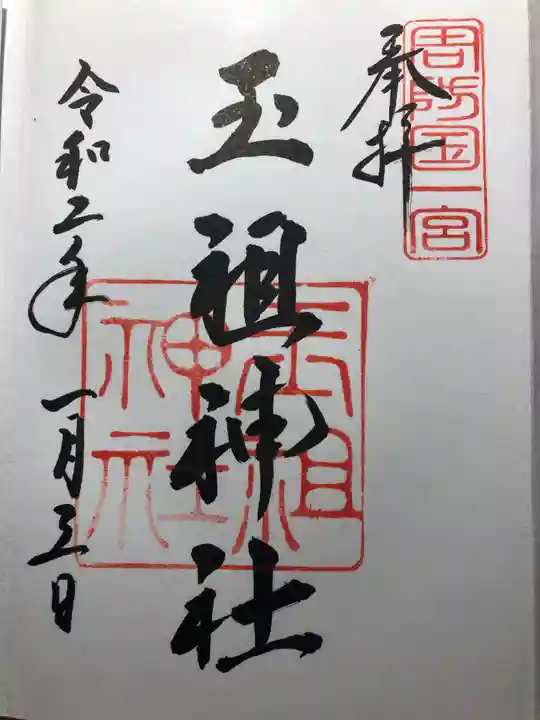 周防国一宮
奉拝
玉祖神社
玉祖神社
令和二年一月三日